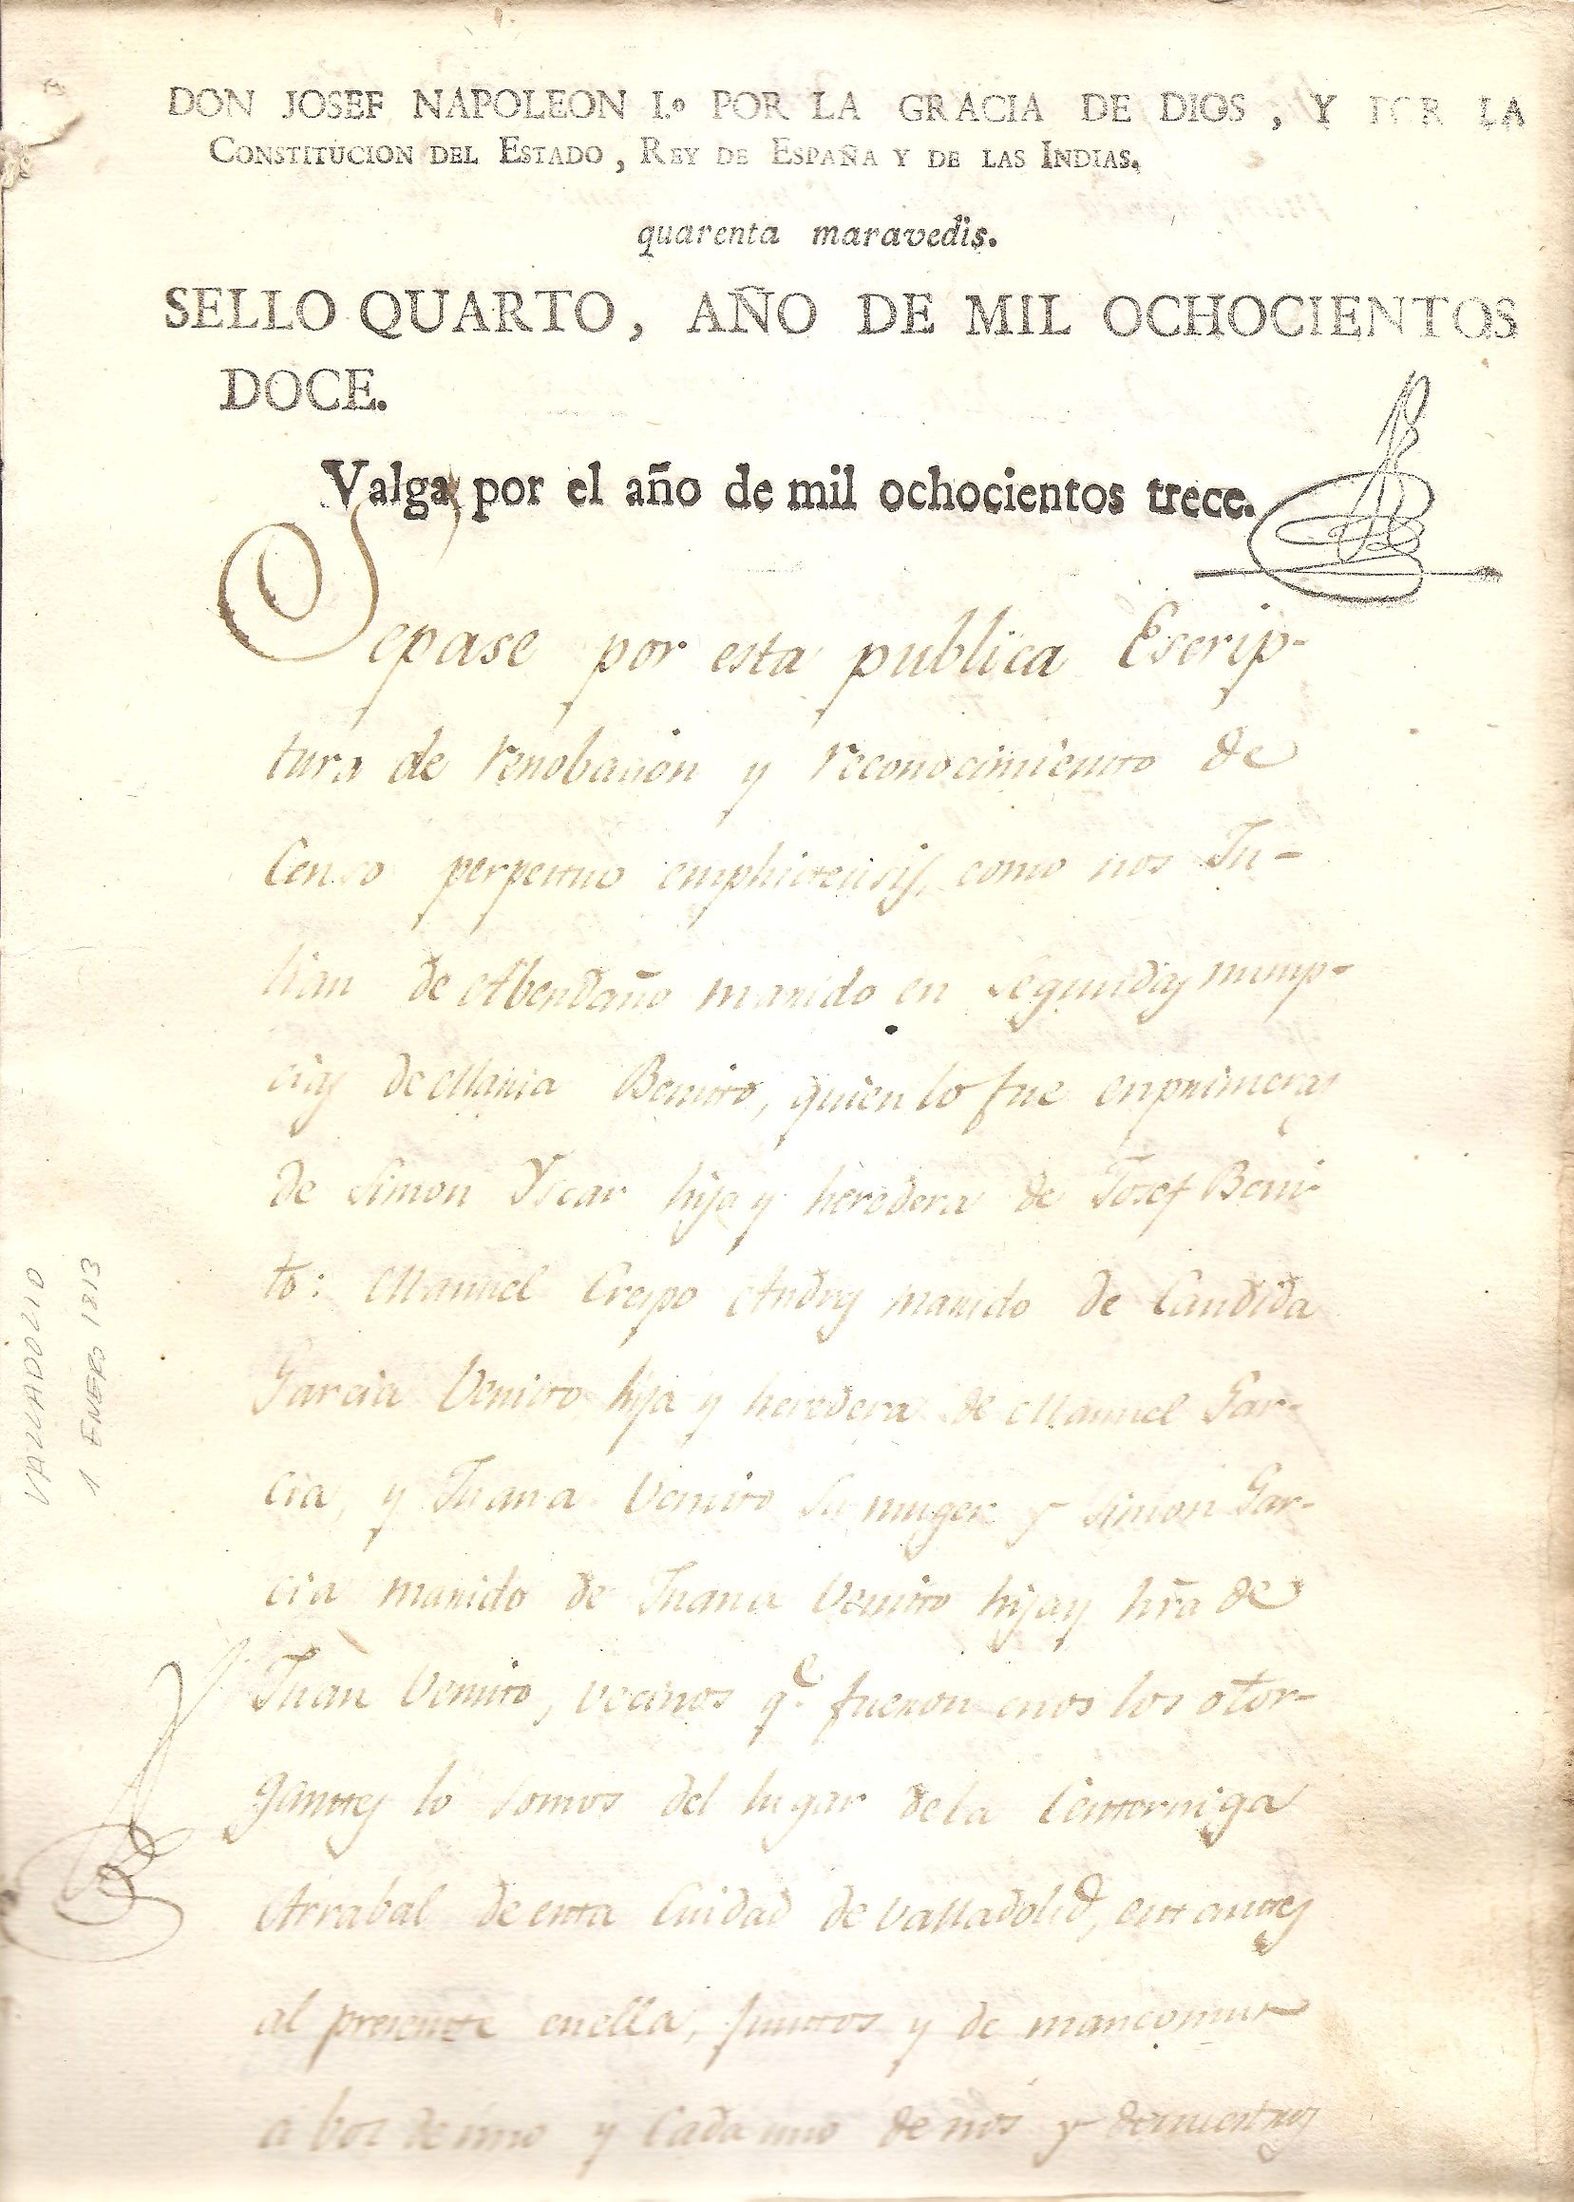 DON JOSEF NAPOLEON I.º POR LA GRACIA DE DIOS, Y POR LA
CONSTITUCION DEL ESTADO, REY DE ESPAÑA Y DE LAS INDIAS.
quarenta maravedis.
SELLO QUARTO, AÑO DE MIL OCHOCIENTOS
DOCE.
Valga por el año de mil ochocientos trece.
Sepase por esta publica Escrip-
tura de renobacion y reconocimientto de
Censo perpettuo emphiteusis, como nos Ju-
lian de Abendaño marido en segundas nump-
cias de Maria Benitto, quien lo fue en primeras
de Simon Yscar hija y heredera de Josef Beni-
to: Manuel Crespo Andres marido de Candida
Garcia Venitto hija y heredera de Manuel Gar-
cia, y Juana Venitto su muger y Simon Gar-
cia marido de Juana Venitto hija y hrã de
Juan Venitto, vecinos q.e fueron enos los otor-
ganttes lo somos del lugar de la Centterniga
Arrabal de esta Ciudad de Valladolid, esttanttes
al presentte en ella, juntos y de mancomun
a boz de uno y Cada uno de nos y de nuestros
VALLADOLID
1 ENERO 1813